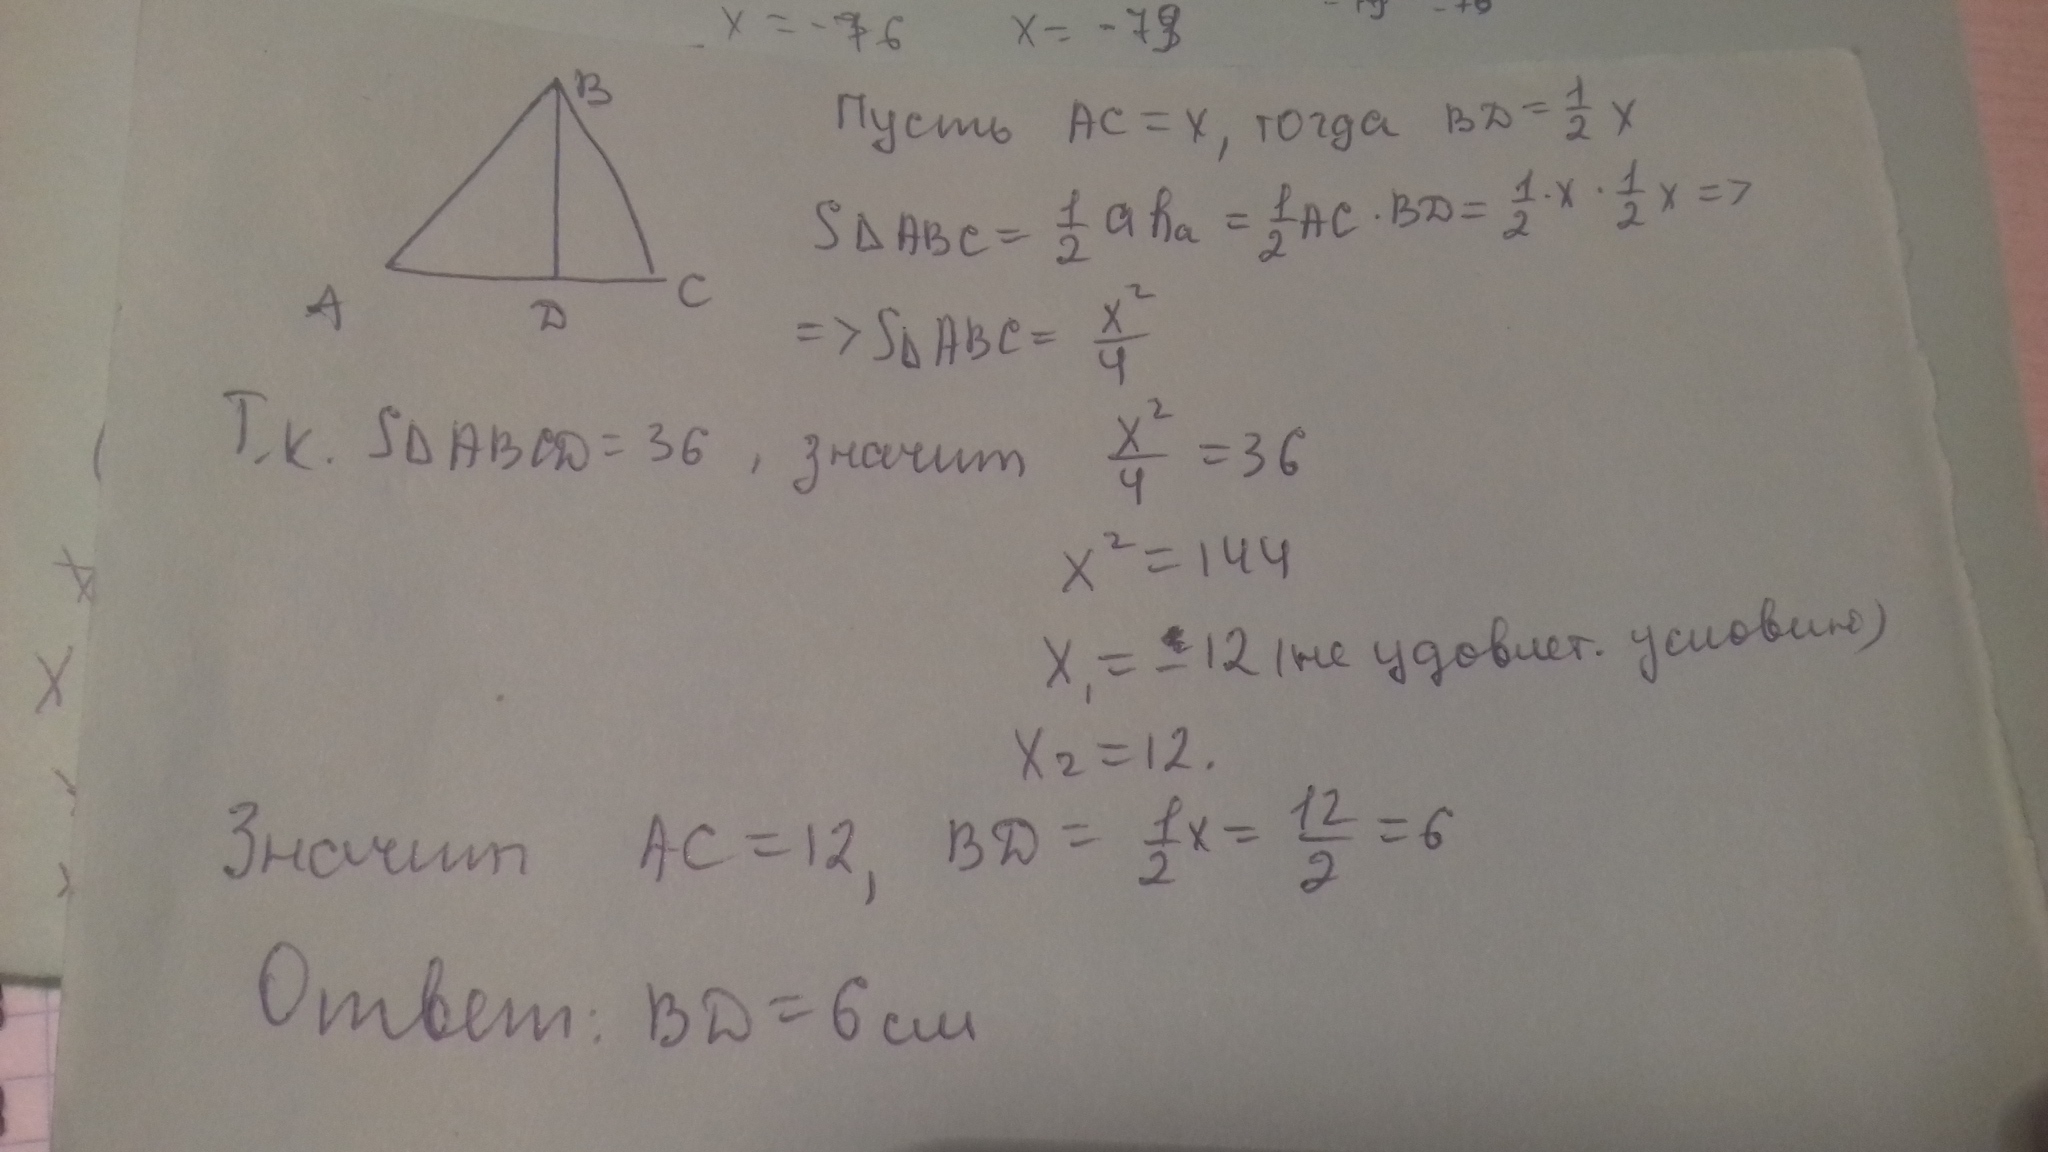 x = -76 x = -73
B
A
D
C
Пусть AC = x, тогда BD = 1/2 x
S∆ABC = 1/2 a hₐ = 1/2 AC · BD = 1/2 · x · 1/2 x =>
=> S∆ABC = x²/4
Т.к. S∆ABCD = 36, значит x²/4 = 36
x² = 144
x₁ = -12 (не удовлет. условию)
x₂ = 12.
Значит AC = 12, BD = 1/2 x = 12/2 = 6
Ответ: BD = 6 см